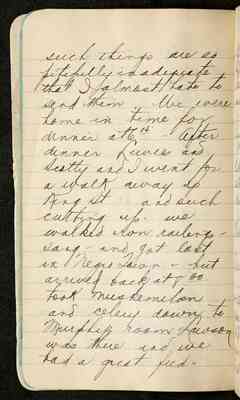 such things are so
pitifully inadequate
that I almost hate to
send them - We were
home in time for
dinner at 6th - After
dinner and
Scotty and I went for
a walk away so
King St and such
cutting up. we
walked iron railings -
sang - and got lost
in Negro Town - but
arrived back at 8 00
took Muskemelon
and celery down to
Murphy's room Lawson
was there and we
had a great feed.